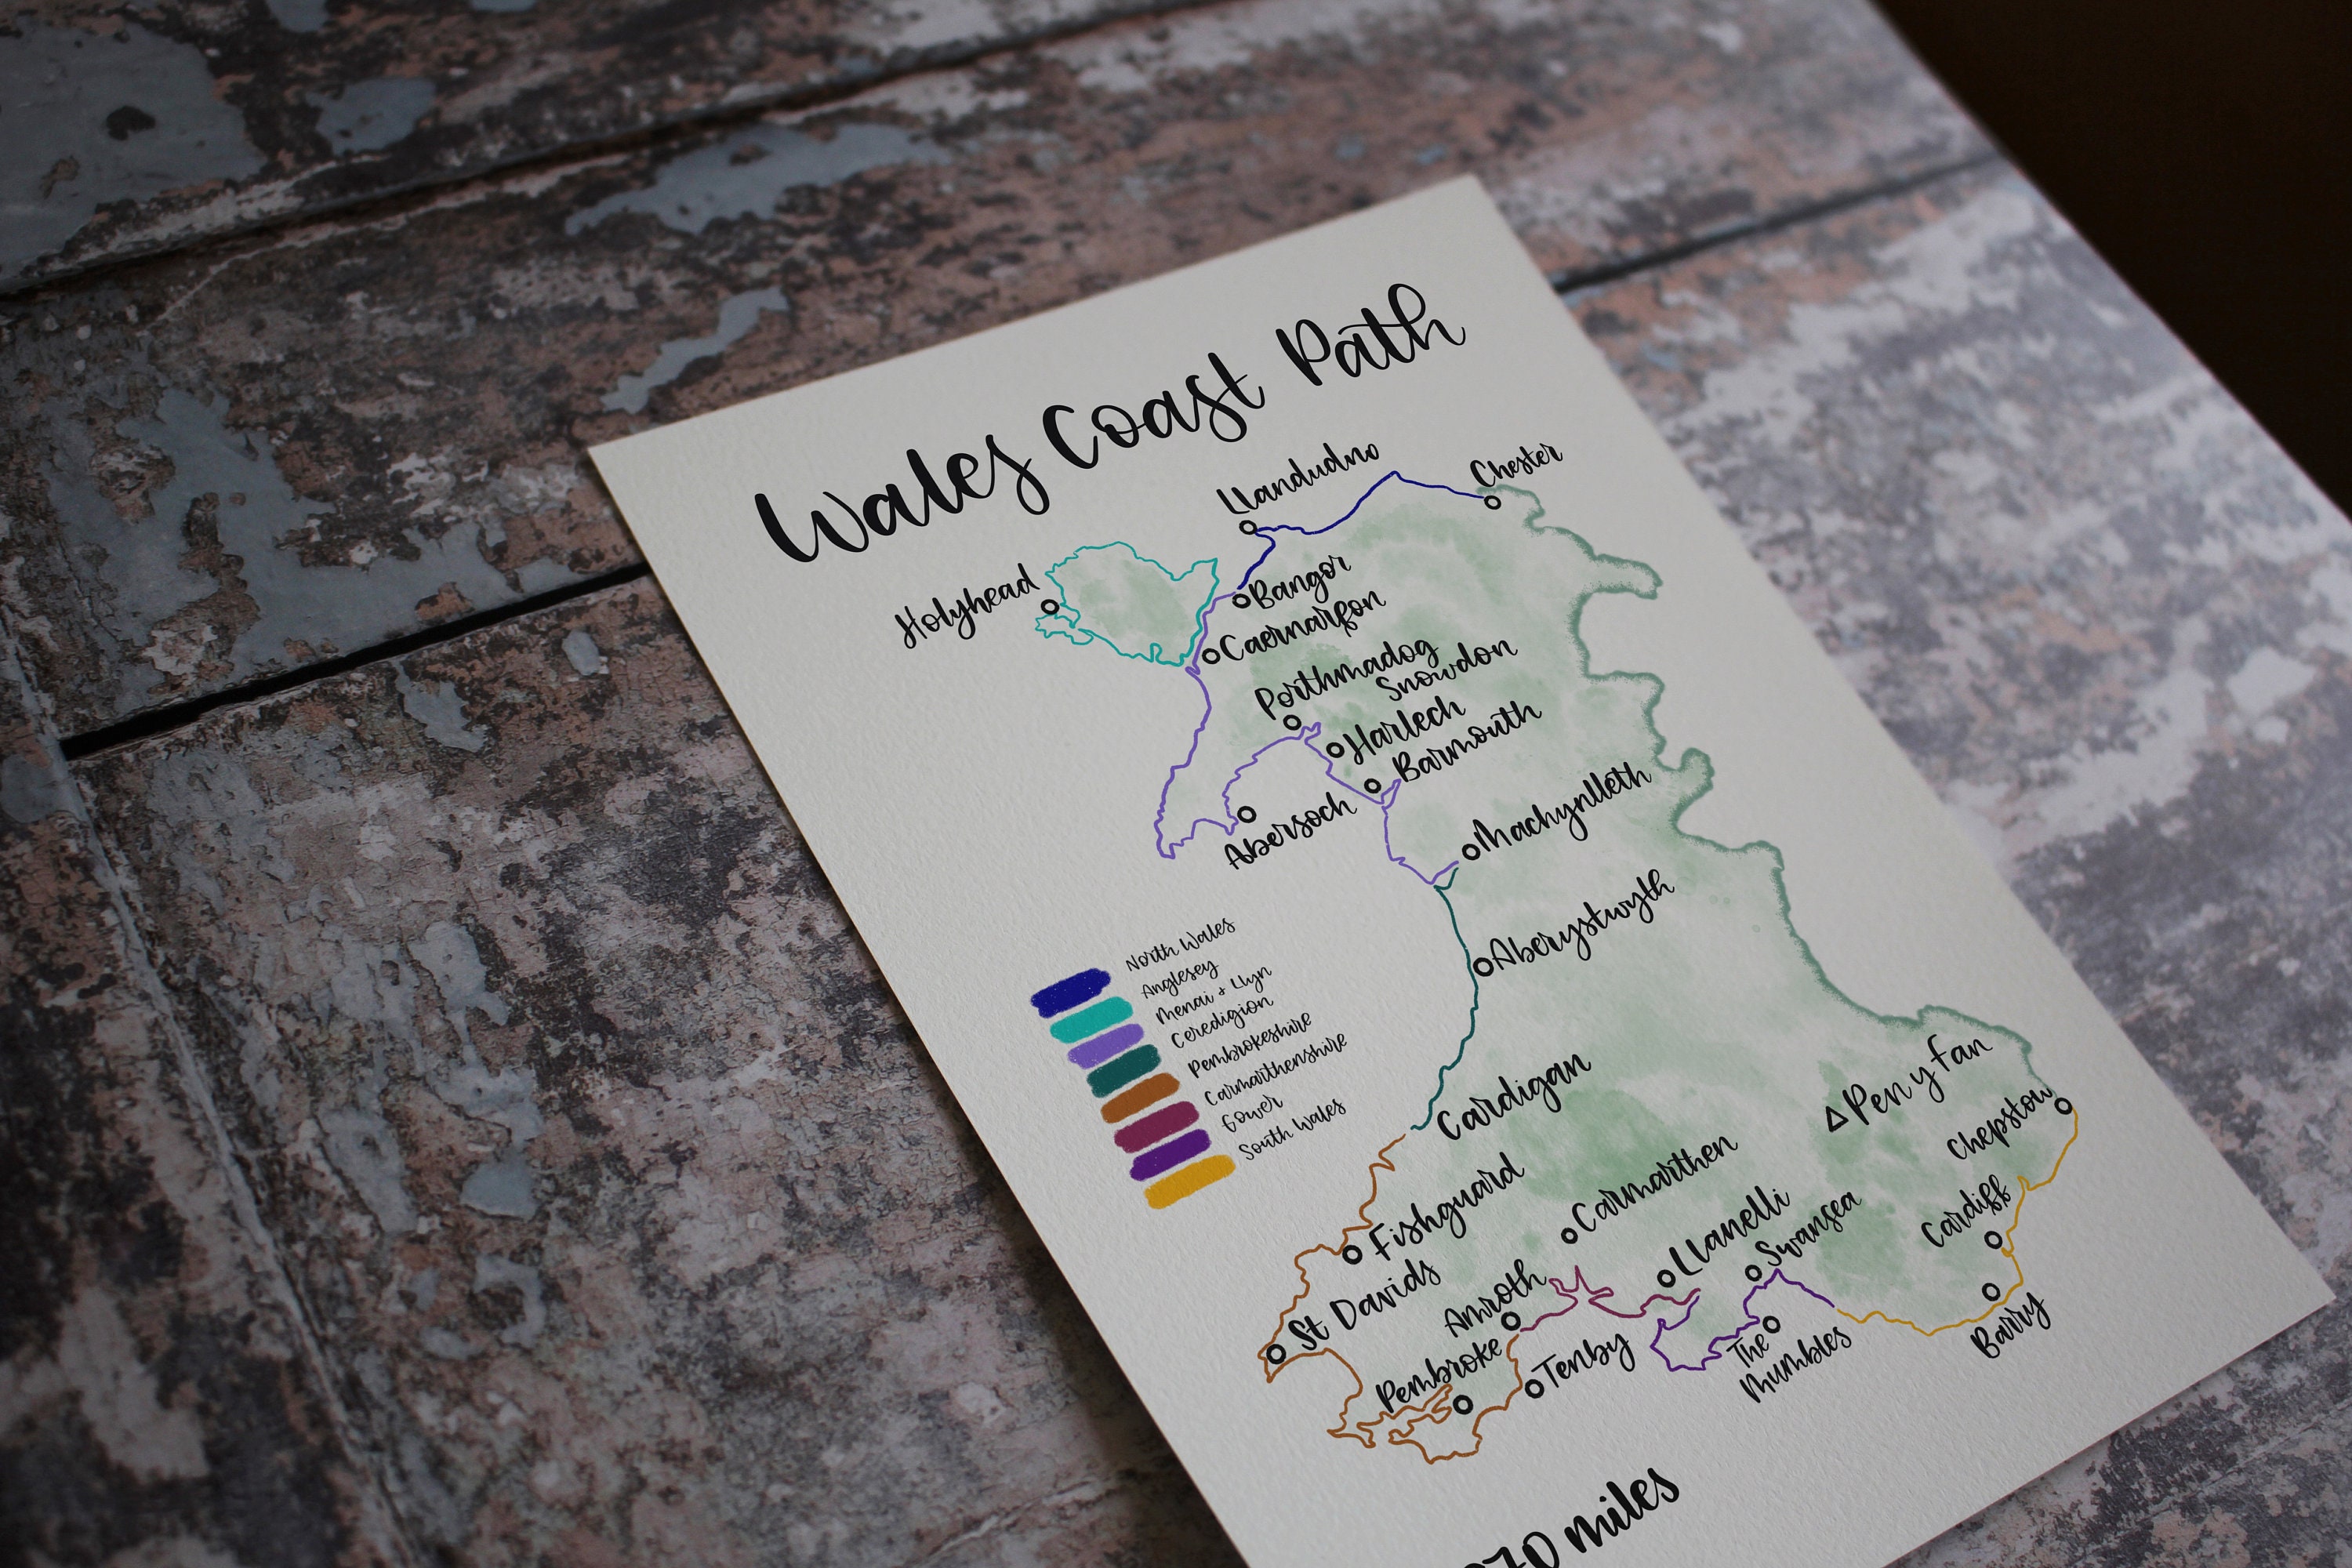 Wales Coast Path
Llandudno
Chester
Holyhead
Bangor
Caernarfon
Porthmadog
Snowdon
Harlech
Barmouth
Abersoch
Machynlleth
Aberystwyth
North Wales
Anglesey
Menai & Llyn
Ceredigion
Pembrokeshire
Carmarthenshire
Gower
South Wales
Cardigan
Pen y Fan
Chepstow
Fishguard
Carmarthen
Cardiff
St Davids
Amroth
Llanelli
Swansea
Pembroke
Tenby
The
Mumbles
Barry
miles